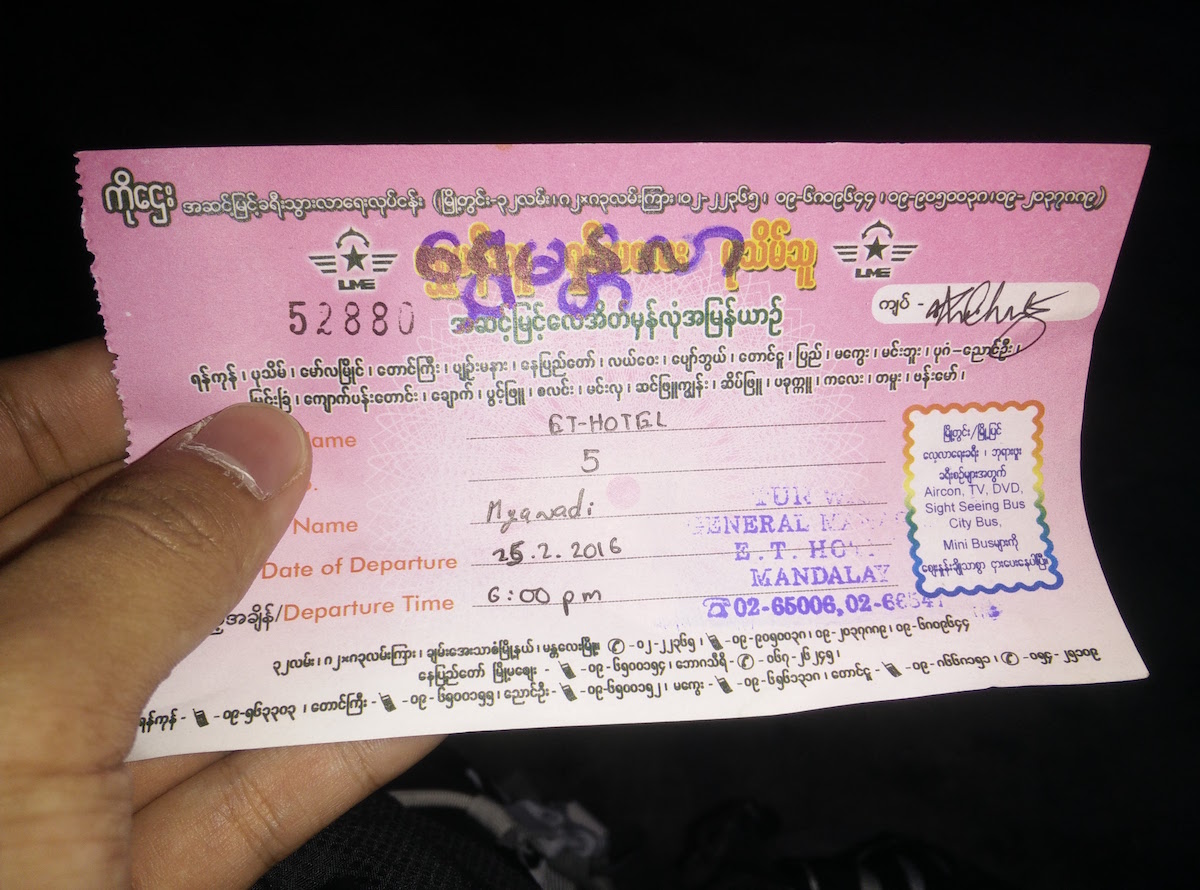 ကိုဌေး အဆင့်မြင့်ခရီးသွားလာရေးလုပ်ငန်း (မြို့တွင်း-၃၂လမ်း၊ ၈၂×၈၃လမ်းကြား၊ ၀၂-၂၂၃၆၅၊ ၀၉-၆၈၀၉၆၄၄၊ ၀၉-၉၀၅၀၀၃၈၊ ၀၉-၂၀၃၇၈၈၉)
LIME
ရွှေမန္တလာ
သိမ်သူ
LIME
52880
အဆင့်မြင့်လေအိတ်မှန်လုံအမြန်ယာဉ်
ကျပ် -
ရန်ကုန်၊ ပုသိမ်၊ မော်လမြိုင်၊ တောင်ကြီး၊ ပျဉ်းမနား၊ နေပြည်တော်၊ လယ်ဝေး၊ ပျော်ဘွယ်၊ တောင်ငူ၊ ပြည်၊ မကွေး၊ မင်းဘူး၊ ပုဂံ-ညောင်ဦး၊
မြင်းခြံ၊ ကျောက်ပန်းတောင်း၊ ချောက်၊ ပွင့်ဖြူ၊ စလင်း၊ မင်းလှ၊ ဆင်ဖြူကျွန်း၊ ဆိပ်ဖြူ၊ ပခုက္ကူ၊ ကလေး၊ တမူး၊ ဗန်းမော်၊
ame ET-HOTEL
5
Name Myawadi
Date of Departure 25.2.2016
အချိန်/Departure Time 6:00 pm
GENERAL
E.T. HO
MANDALAY
☎02-65006,02-6
မြို့တွင်း/မြို့ပြင်
လေ့လာရေးခရီး၊ ဘုရားဖူး
ခရီးစဉ်များအတွက်
Aircon, TV, DVD,
Sight Seeing Bus
City Bus,
Mini Busများကို
ဈေးနှုန်းချိုသာစွာ ငှားပေးနေပါပြီ။
၃၂လမ်း၊ ၈၂×၈၃လမ်းကြား၊ ချမ်းအေးသာစံမြို့နယ်၊ မန္တလေးမြို့။ ✆ -၀၂-၂၂၃၆၅၊ -၀၉-၉၀၅၀၀၃၈၊ ၀၉-၂၀၃၇၈၈၉၊ ၀၉-၆၈၀၉၆၄၄
နေပြည်တော် မြို့မဈေး - -၀၉-၆၅၀၀၁၅၄၊ ဘောဂသီရိ- ✆ ၀၆၇-၂၆၂၄၅၊
ရန်ကုန် - -၀၉-၅၆၃၃၀၃၊ တောင်ကြီး - -၀၉-၆၅၀၀၁၅၅၊ ညောင်ဦး- -၀၉-၆၅၀၀၁၅၂၊ မကွေး - -၀၉-၆၅၆၁၃၁၈၊ တောင်ငူ - -၀၉-၈၆၆၈၁၅၁၊ ✆ -၀၅၄-၂၅၁၀၉